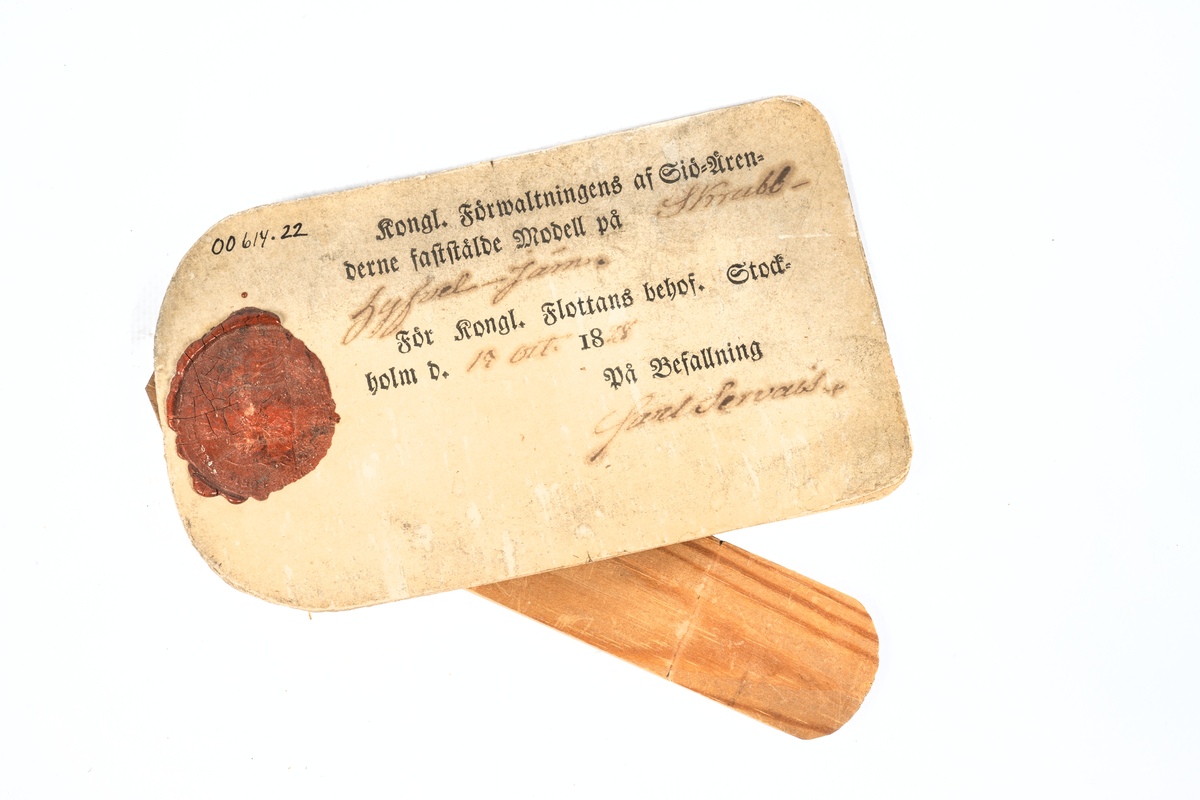 00614.22
Kongl. Förwaltningens af Siö-Ären-
derne faststålde Modell på Skrubb-
hyfvel-Järn.
För Kongl. Flottans behof. Stock-
holm d. Oct. 18
På Befallning
Carl Servais